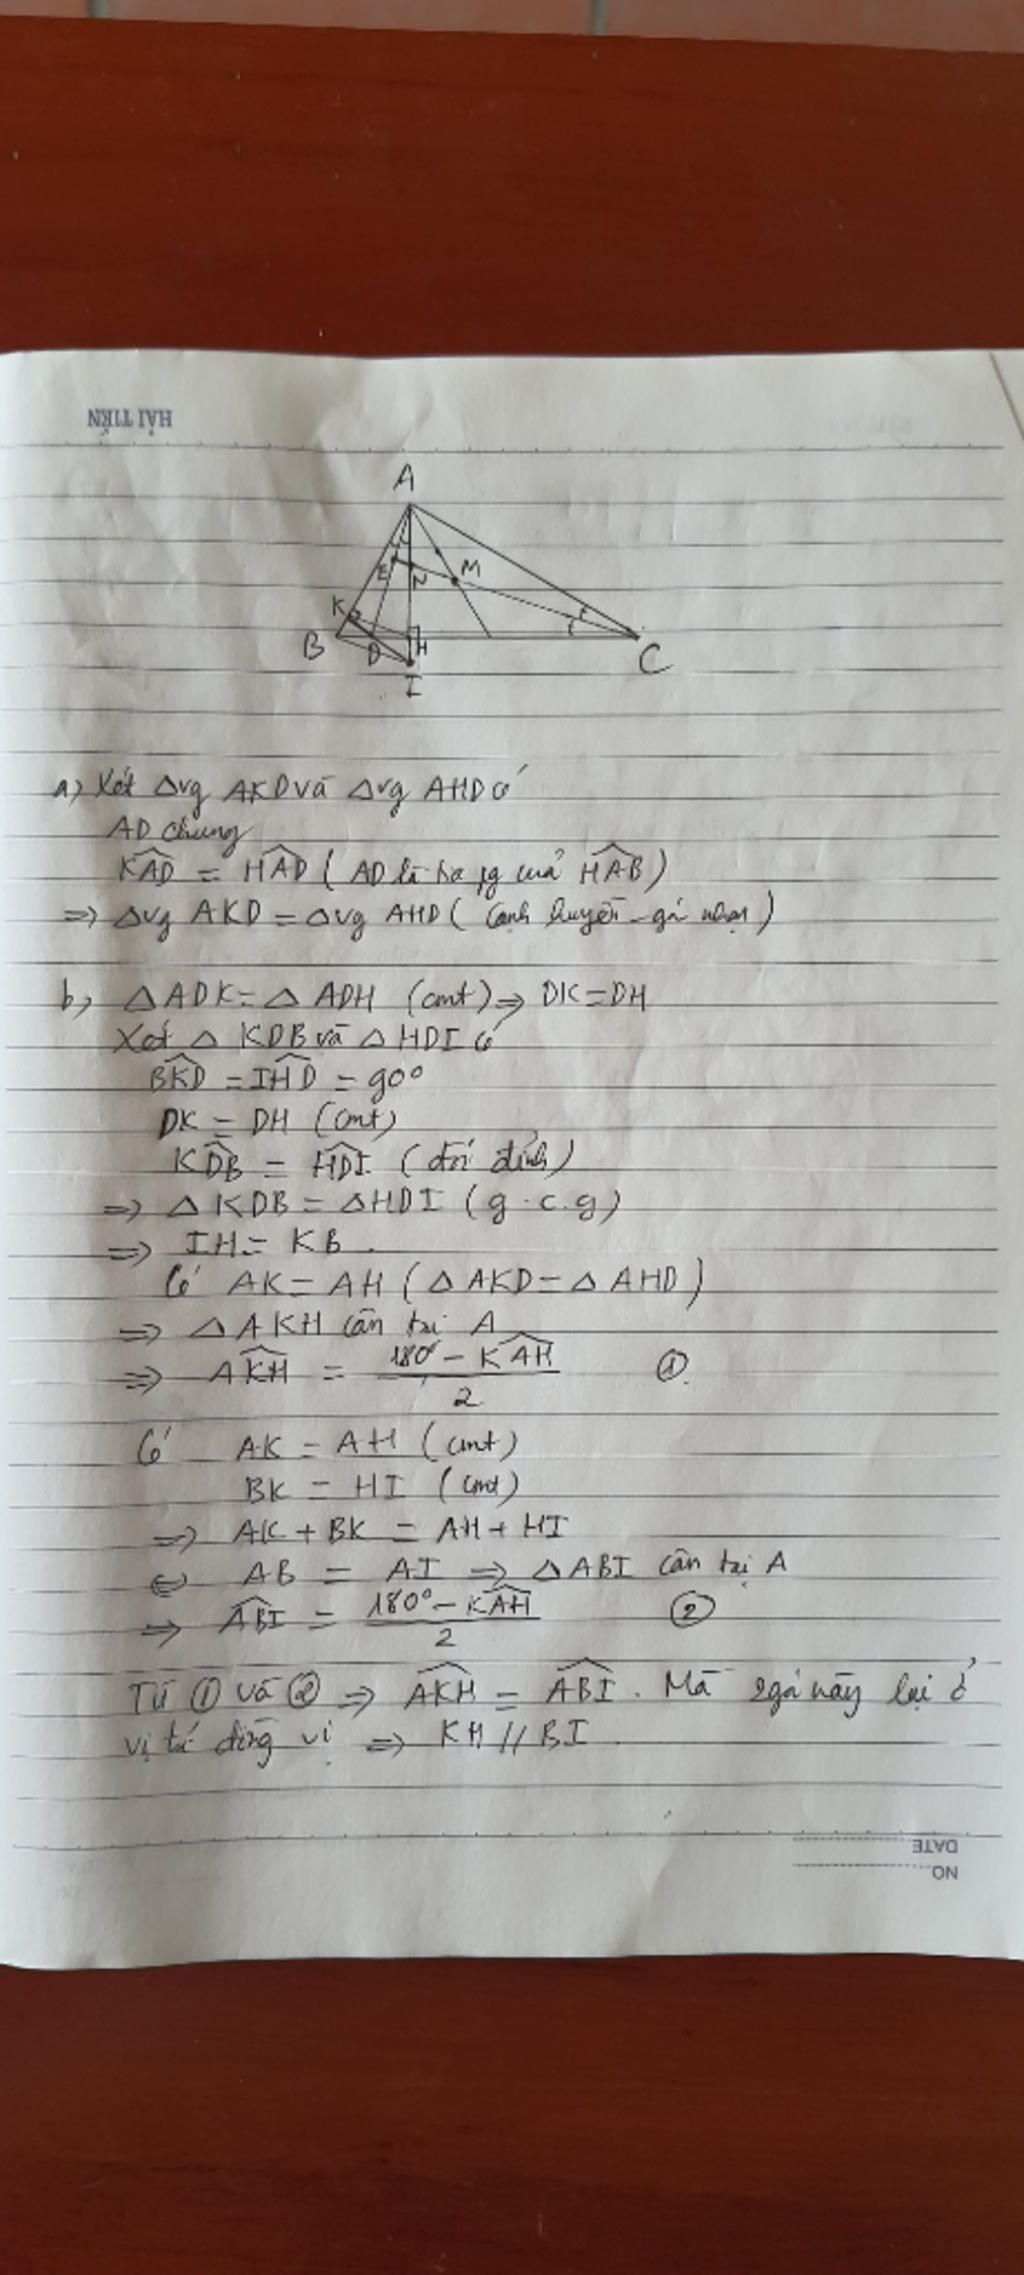 HẢI TIẾN
A
E
N
M
K
B
D
H
C
I
a) Xét Δvg AKD và Δvg AHD có
AD chung
KAD = HAD ( AD là tia pg của HAB )
=> Δvg AKD = Δvg AHD ( cạnh huyền - góc nhọn )
b, Δ ADK = Δ ADH (cmt) => DK = DH
Xét Δ KDB và Δ HDI có
BKD = IHD = 90°
DK = DH (cmt)
KDB = HDI ( đối đỉnh )
=> Δ KDB = Δ HDI ( g.c.g )
=> IH = KB .
Có AK = AH ( Δ AKD = Δ AHD )
=> Δ AKH cân tại A
=> AKH = (180° - KAH) / 2 ①
Có AK = AH ( cmt )
BK = HI ( cmt )
=> AK + BK = AH + HI
<=> AB = AI => Δ ABI cân tại A
=> ABI = (180° - KAH) / 2 ②
Từ ① và ② => AKH = ABI . Mà 2 góc này lại ở
vị trí đồng vị => KH // BI .
DATE
NO